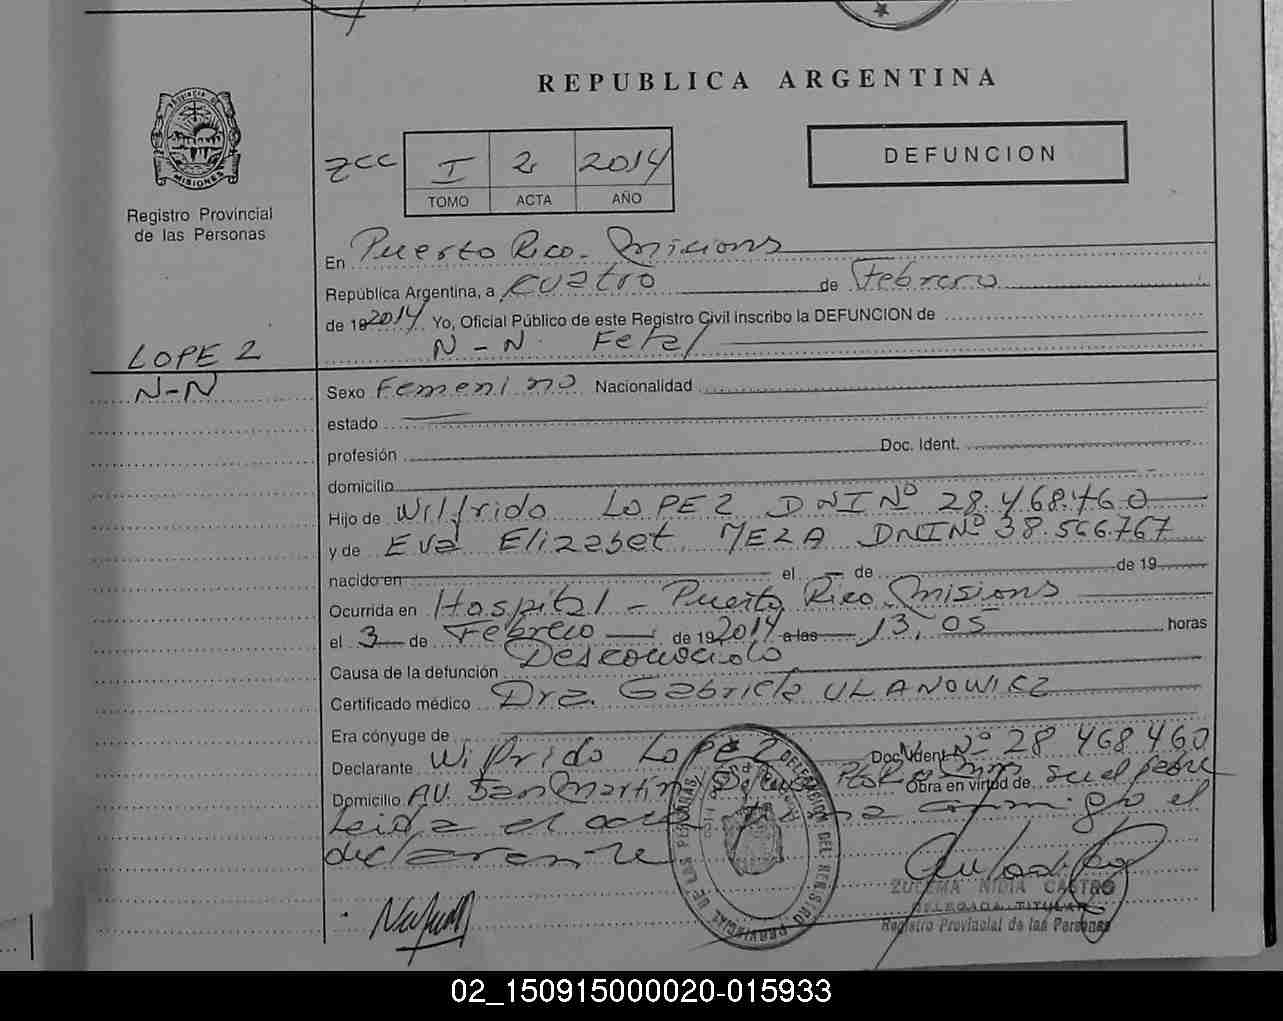 REPUBLICA ARGENTINA
PROVINCIA DE
MISIONES
Registro Provincial
de las Personas
zcc I 2 2014
TOMO ACTA AÑO
DEFUNCION
En Puerto Rico - Misiones
República Argentina, a cuatro de Febrero
de 19 2014 Yo, Oficial Público de este Registro Civil inscribo la DEFUNCION de
N-N Fetal
LOPEZ
N-N
Sexo Femenino Nacionalidad
estado
profesión Doc. Ident.
domicilio
Hijo de Wilfrido LOPEZ DNI Nº 28.468.460
y de Eva Elizabet MEZA DNI Nº 38.566.767
nacido en el de de 19
Ocurrida en Hospital - Puerto Rico. Misiones
el 3 de Febrero de 19 2014 a las 13,05 horas
Causa de la defunción Desconocido
Certificado médico Dra. Gabriela ULANOWICZ
Era cónyuge de
Declarante Wilfrido LOPEZ Doc. Ident. Nº 28 468 460
Domicilio AV. San Martin Pto Rico Mnes Obra en virtud de su el padre
Leida el acta firma conmigo el
declarante
DELEGACION DEL REGISTRO PROVINCIAL DE LAS PERSONAS
ZULEMA NIDIA CASTRO
DELEGADA TITULAR
Registro Provincial de las Personas
02_150915000020-015933